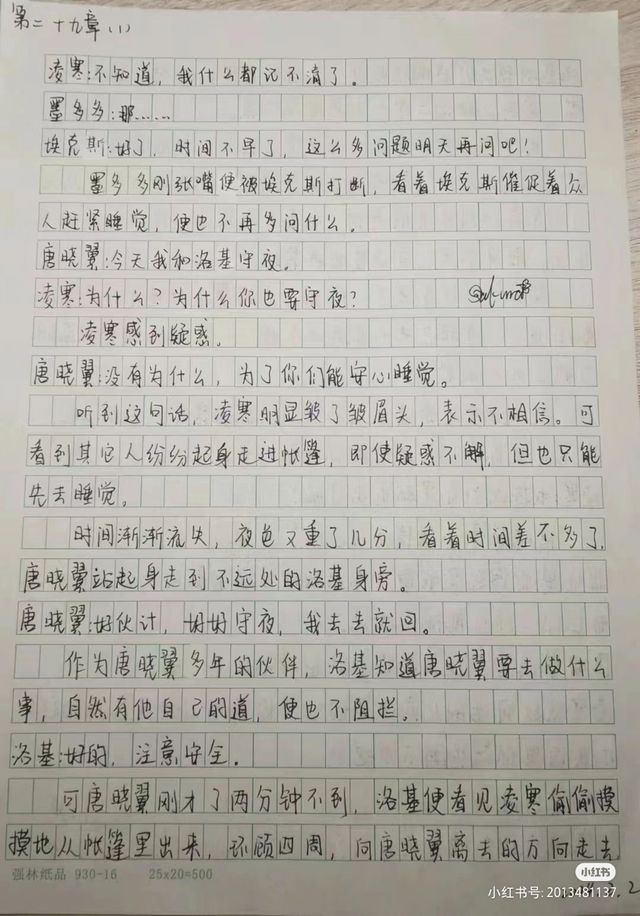 第二十九章(1)
凌寒:不知道，我什么都记不清了。
墨多多:那……
埃克斯:好了，时间不早了，这么多问题明天再问吧！
墨多多刚张嘴便被埃克斯打断，看着埃克斯催促着众
人赶紧睡觉，便也不再多问什么。
唐晓翼:今天我和洛基守夜。
凌寒:为什么？为什么你也要守夜？
凌寒感到疑惑。
唐晓翼:没有为什么，为了你们能安心睡觉。
听到这句话，凌寒明显皱了皱眉头，表示不相信。可
看到其它人纷纷起身走进帐篷，即使疑惑不解，但也只能
先去睡觉。
时间渐渐流失，夜色又重了几分，看着时间差不多了，
唐晓翼站起身走到不远处的洛基身旁。
唐晓翼:好伙计，好好守夜，我去去就回。
作为唐晓翼多年的伙伴，洛基知道唐晓翼要去做什么
事，自然有他自己的道，便也不阻拦。
洛基:好的，注意安全。
可唐晓翼刚才了两分钟不到，洛基便看见凌寒偷偷摸
摸地从帐篷里出来，环顾四周，向唐晓翼离去的方向走去。
强林纸品 930-16 25x20=500
小红书
小红书号: 2013481137